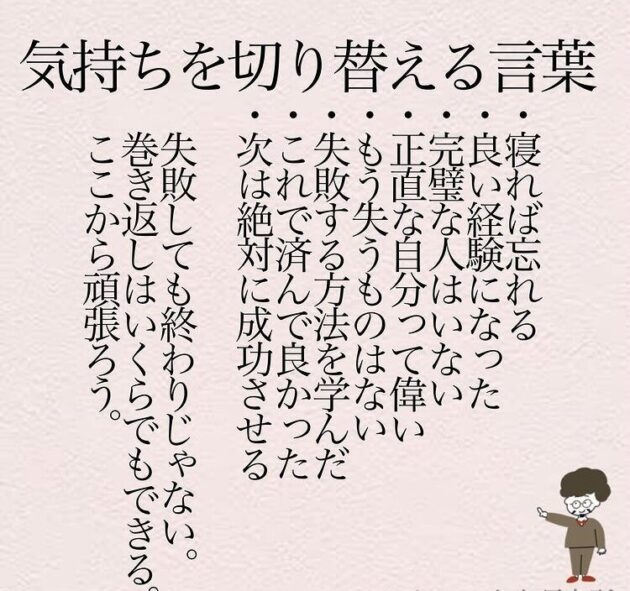 気持ちを切り替える言葉
・寝れば忘れる
・良い経験になった
・完璧な人はいない
・正直な自分って偉い
・もう失うものはない
・失敗する方法を学んだ
・これで済んで良かった
・次は絶対に成功させる
失敗しても終わりじゃない。
巻き返しはいくらでもできる。
ここから頑張ろう。